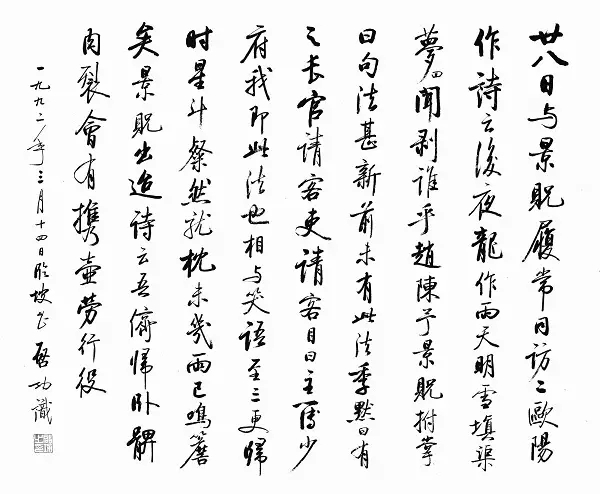 廿八日与景貺履常同访二歐陽
作詩云後夜龍作雨天明雪填渠
夢回聞剥誰乎趙陳予景貺拊掌
曰句法甚新前未有此法季默曰有
之长官請客吏請客目曰主簿少
府我即此法也相与笑語至三更歸
时星斗粲然就枕未幾雨已鳴簷
矣景貺出迨詩云吾儕歸卧髀
肉裂會有携壺勞行役
一九九二年三月十四日临坡书 啓功識